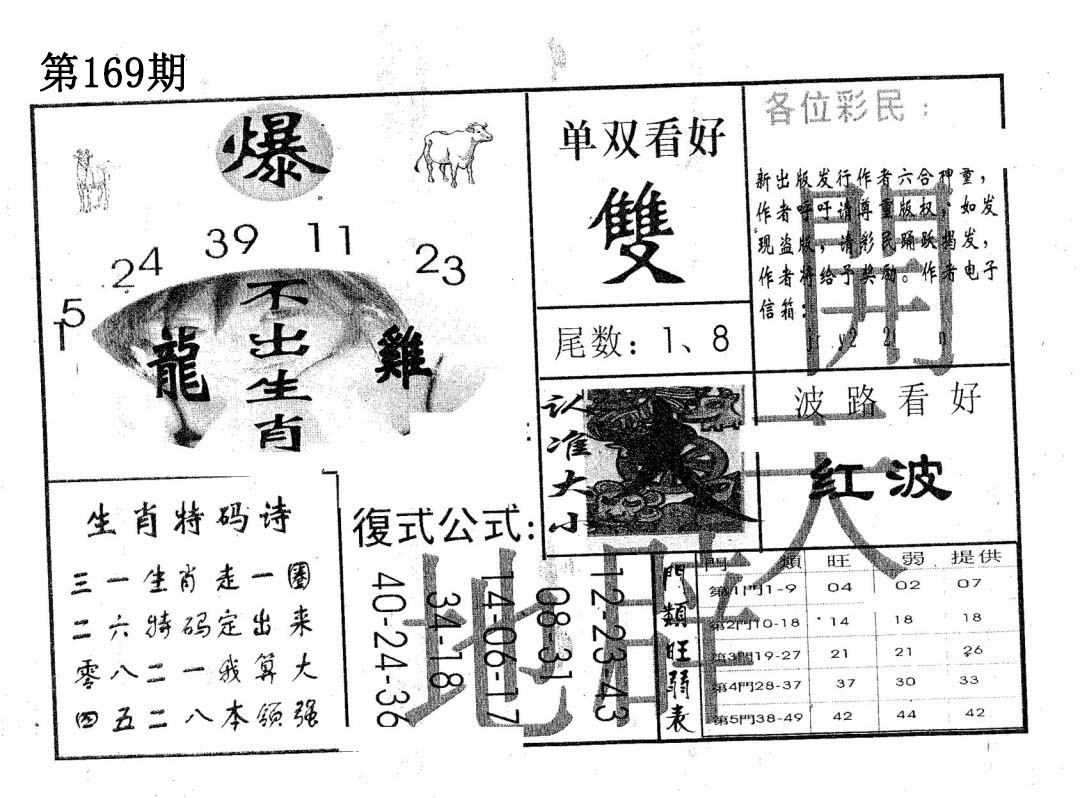 第169期
爆
15
24
39
11
23
不出生肖
龍
雞
单双看好
雙
尾数：1、8
各位彩民：
新出版发行作者六合神童，
作者呼吁请尊重版权，如发
现盗版，请彩民踊跃揭发，
作者将给予奖励。作者电子
信箱：
開
天
地
认准大小
波路看好
红波
生肖特码诗
三一生肖走一圈
二六特码定出来
零八二一我算大
四五二八本领强
復式公式：
40-24-36
34-18
14-06-17
08-31
12-23-43
門類旺弱表
門類 旺 弱 提供
第1門1-9 04 02 07
第2門10-18 14 18 18
第3門19-27 21 21 26
第4門28-37 37 30 33
第5門38-49 42 44 42